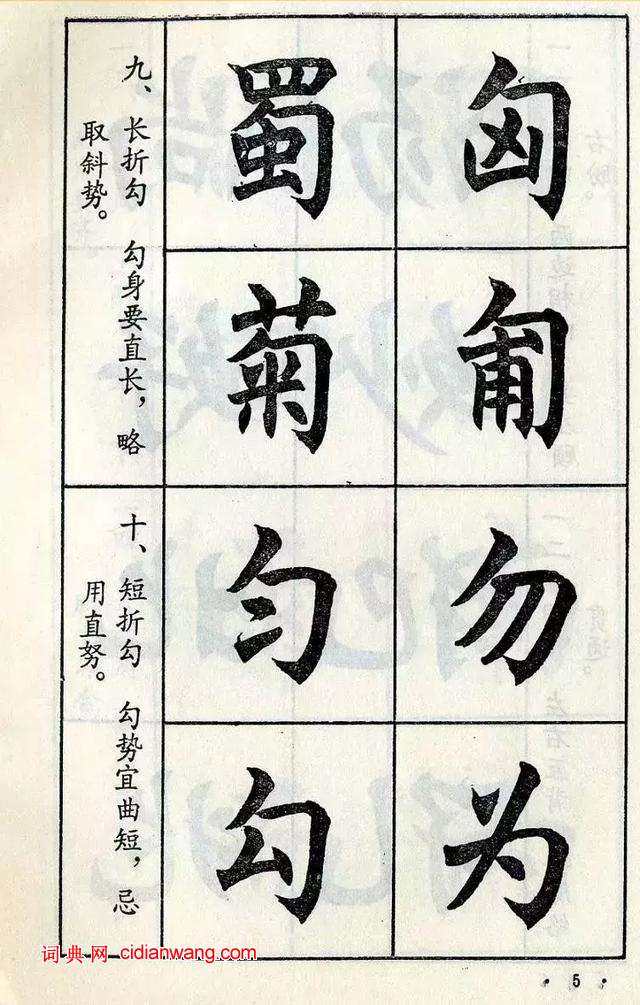 九、长折勾　勾身要直长，略
取斜势。
匈
匍
蜀
菊
十、短折勾　勾势宜曲短，忌
用直努。
勿
为
匀
勾
词典网 cidianwang.com
· 5 ·